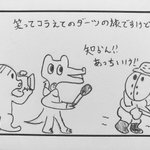 笑ってコラえてのダーツの旅ですけど
知らん!!
あっちいけ!!